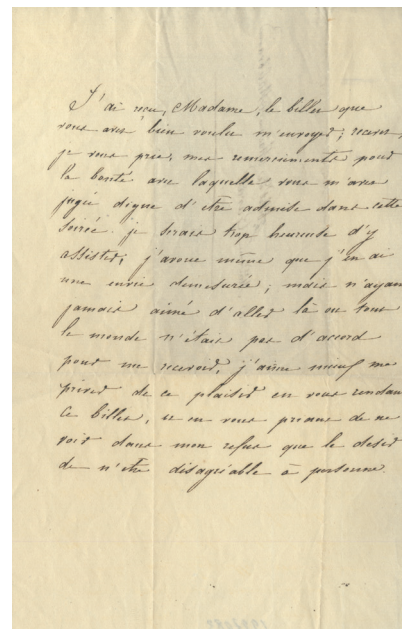 J'ai reçu, Madame, le billet que
vous avez bien voulu m'envoyer; recevez,
je vous prie, mes remerciements pour
la bonté avec laquelle vous m'avez
jugée digne d'être admise dans cette
soirée. je serais trop heureuse d'y
assister; j'avoue même que j'en ai
une envie demesurée; mais n'ayant
jamais aimé d'aller là où tout
le monde n'était pas d'accord
pour me recevoir, j'aime mieux me
priver de ce plaisir en vous rendant
ce billet, et en vous priant de ne
voir dans mon refus que le desir
de n'être disagréable à personne.